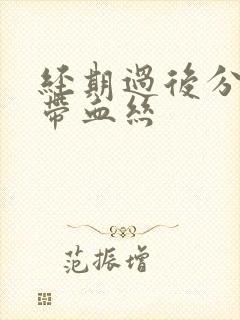 經期過後分
帶血絲
范振增